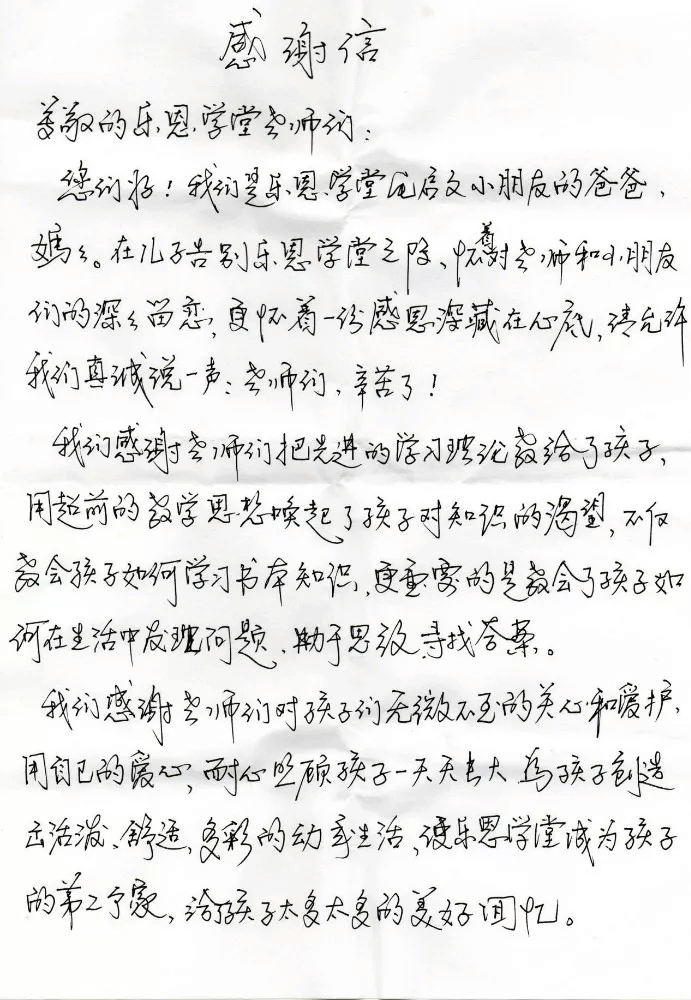 感谢信
尊敬的乐恩学堂老师们：
您们好！我们是乐恩学堂启文小朋友的爸爸、
妈々。在儿子告别乐恩学堂之际、怀着对老师和小朋友
们的深々留恋，更怀着一份感恩深藏在心底，请允许
我们真诚说一声：老师们，辛苦了！
我们感谢老师们把先进的学习理论教给了孩子，
用超前的教学思想唤起了孩子对知识的渴望，不仅
教会孩子如何学习书本知识，更重要的是教会了孩子如
何在生活中发现问题、勤于思考、寻找答案。
我们感谢老师们对孩子们无微不至的关心和爱护，
用自己的爱心，耐心照顾孩子一天天长大，为孩子创造
出活泼、舒适，多彩的幼享生活，使乐恩学堂成为孩子
的第二个家，给孩子太多太多的美好回忆。